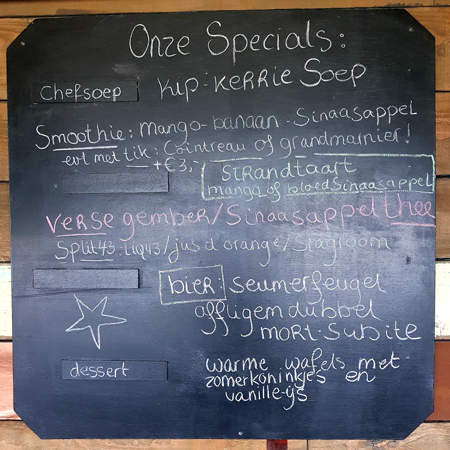 Onze Specials:
Chefsoep Kip-Kerrie Soep
Smoothie: Mango-banaan-Sinaasappel
evt met tik: Cointreau of grandmarnier!
+€3,-
Strandtaart
mango of bloedSinaasappel
Verse gember/Sinaasappel thee
Split43: Liq43/jus d'orange/Slagroom
bier: Seumerfeugel
affligem dubbel
Mort-Subite
dessert warme wafels met
zomerkoninkjes en
vanille-ijs